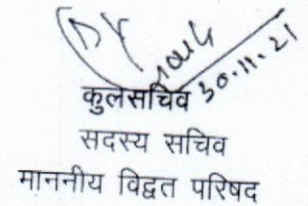 30.11.21
कुलसचिव
सदस्य सचिव
माननीय विद्वत परिषद